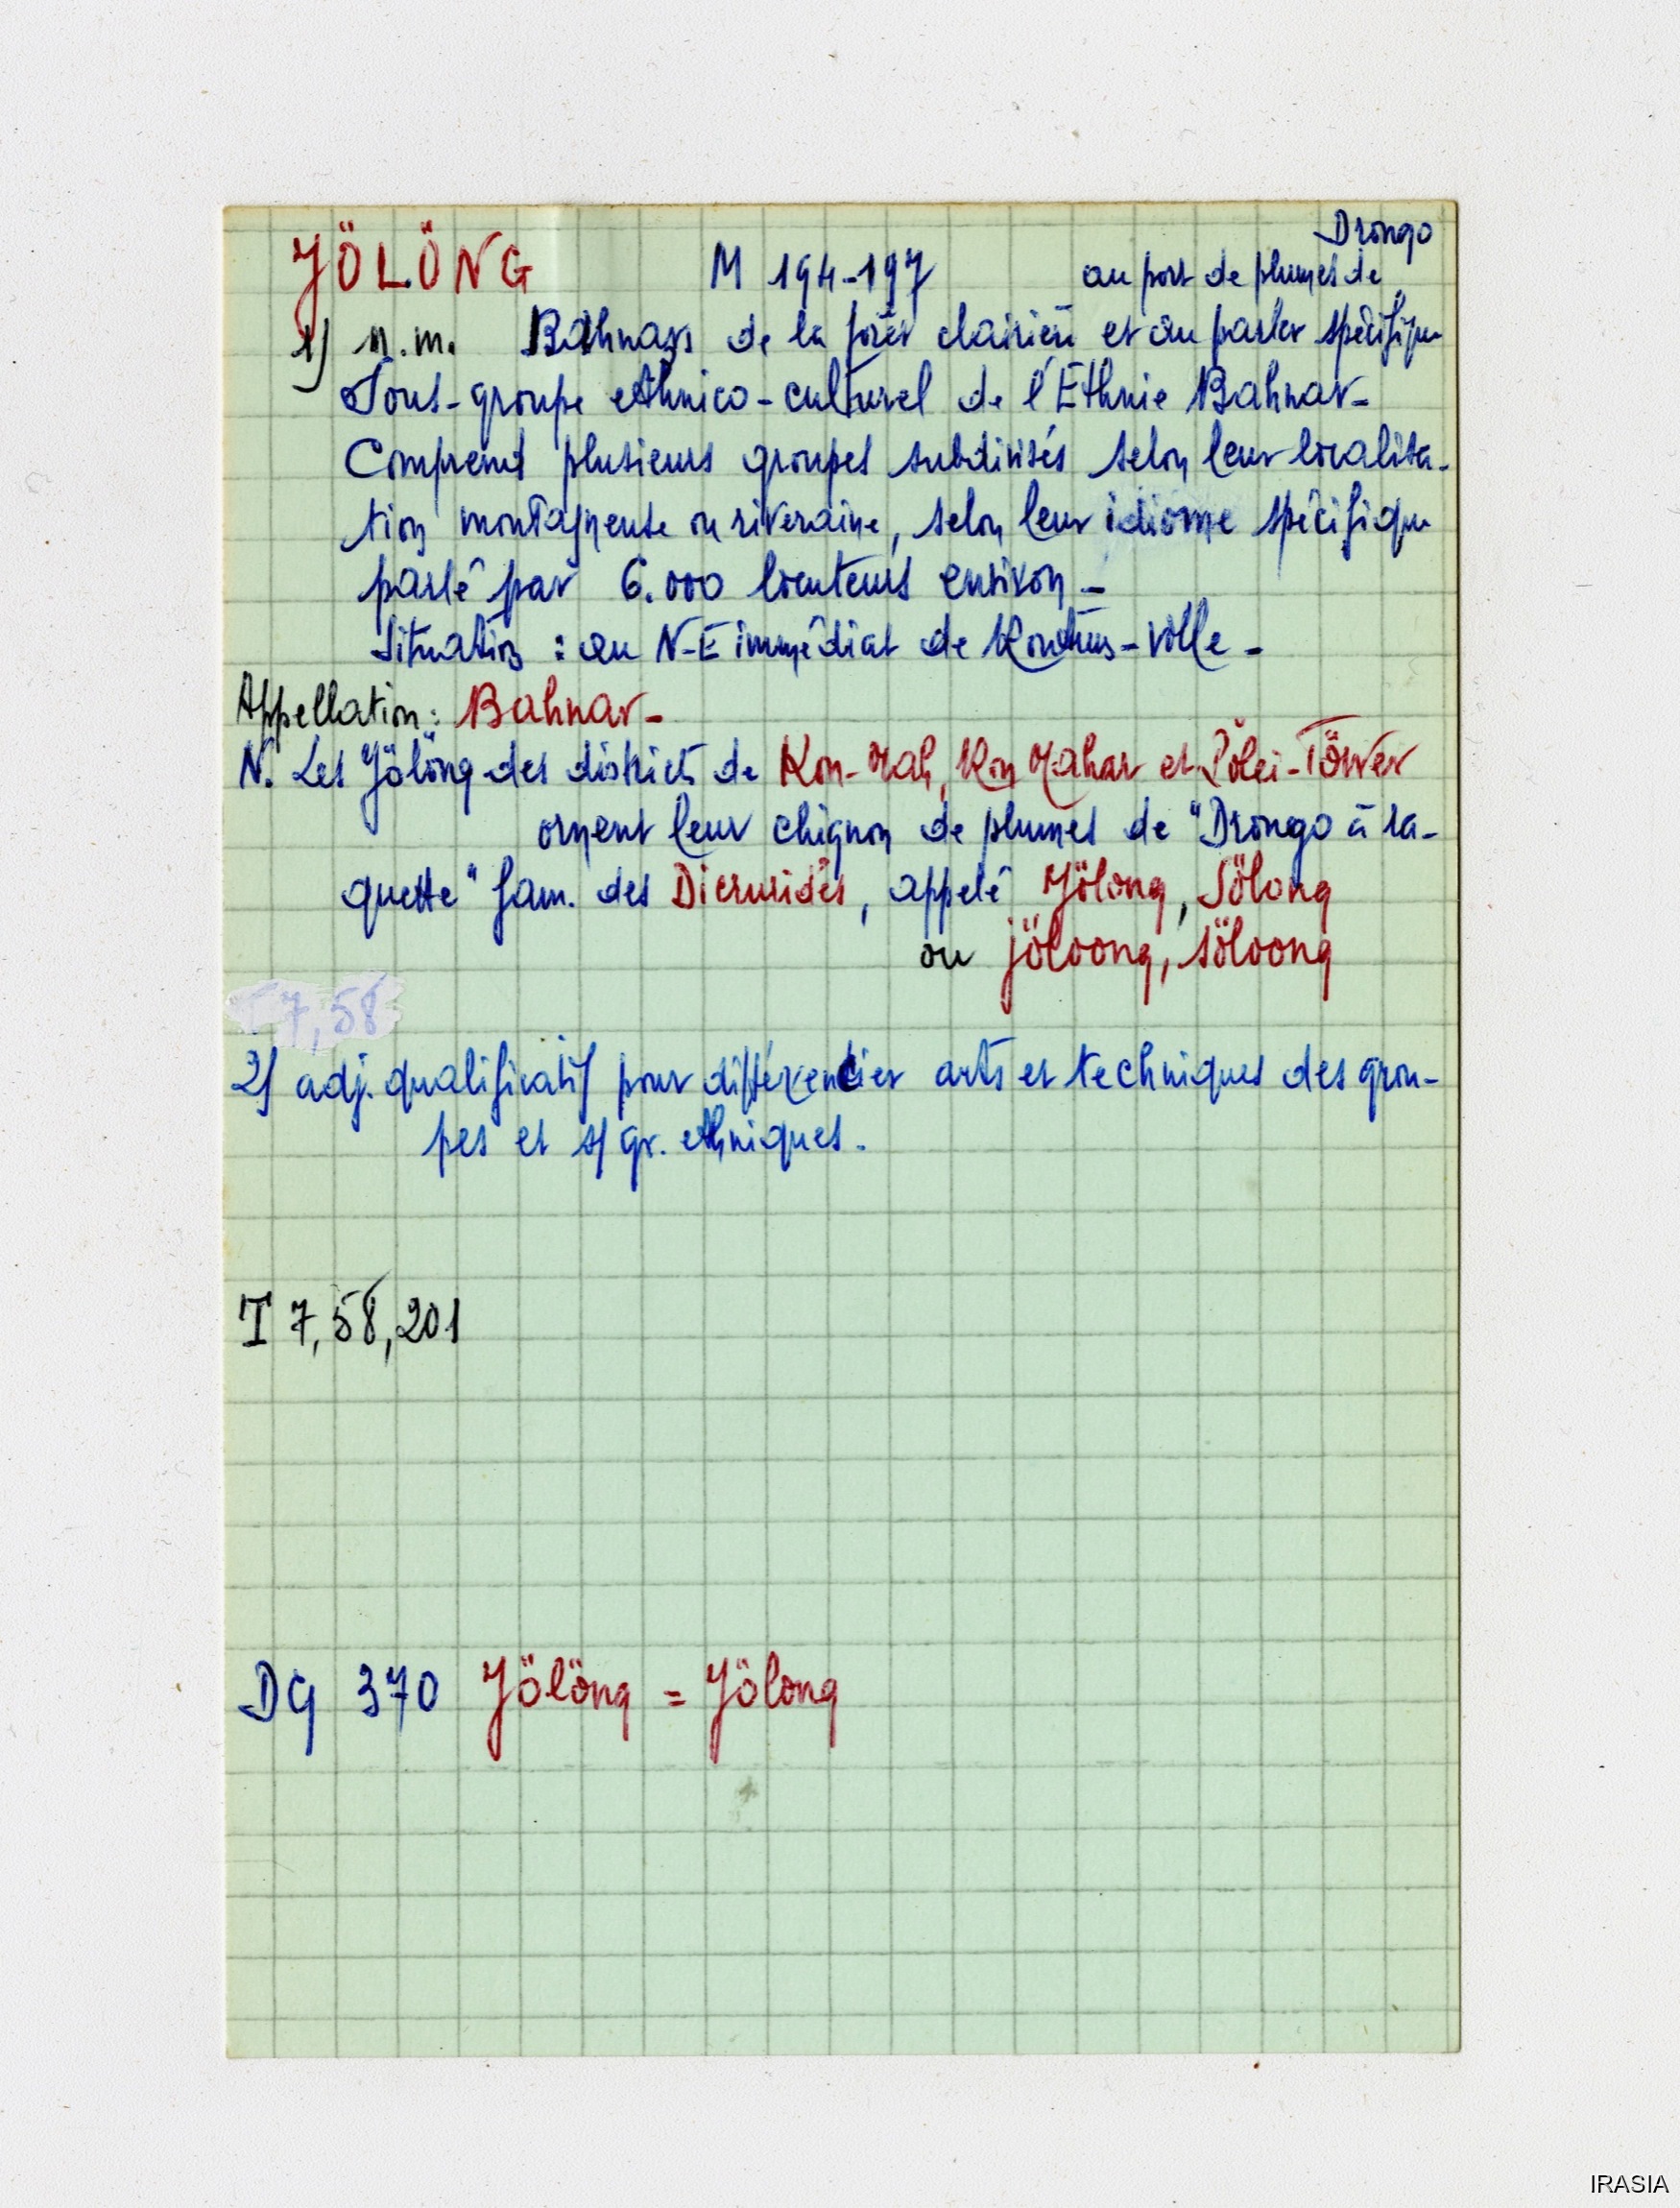 Drongo
JÖLÖNG M 194-197 au port de plumes de
1) n.m. Bahnars de la forêt clairière et au parler spécifique
Sous-groupe ethnico-culturel de l'Ethnie Bahnar-
Comprend plusieurs groupes subdivisés selon leur localisa-
tion montagneuse ou riveraine, selon leur idiome spécifique
parlé par 6.000 locuteurs environ-
Situation : au N-E immédiat de Kontum-ville-
Appellation: Bahnar-
N. Les Jölöng des districts de Kon-Mah, Kon Mahar et Pölei-Töwer
ornent leur chignon de plumes de "Drongo à ra-
quette" fam. des Dicruridés, appelé Jölong, Sölong
ou jöloong, söloong
T 7,58
2) adj. qualificatif pour différencier arts et techniques des grou-
pes et s/gr. ethniques.
T 7,58,201
DG 370 Jölöng = Jölong
IRASIA